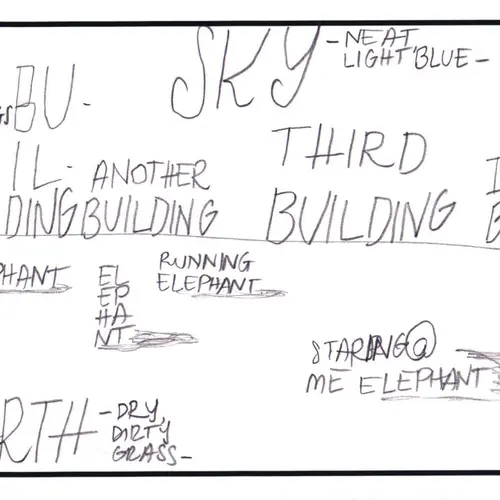 SKY
-NEAT
LIGHT BLUE-
BU-
IL-
DING
ANOTHER
BUILDING
THIRD
BUILDING
PHANT
EL
EP
HA
NT
RUNNING
ELEPHANT
STARING@
ME ELEPHANT
RTH
-DRY,
DIRTY
GRASS-